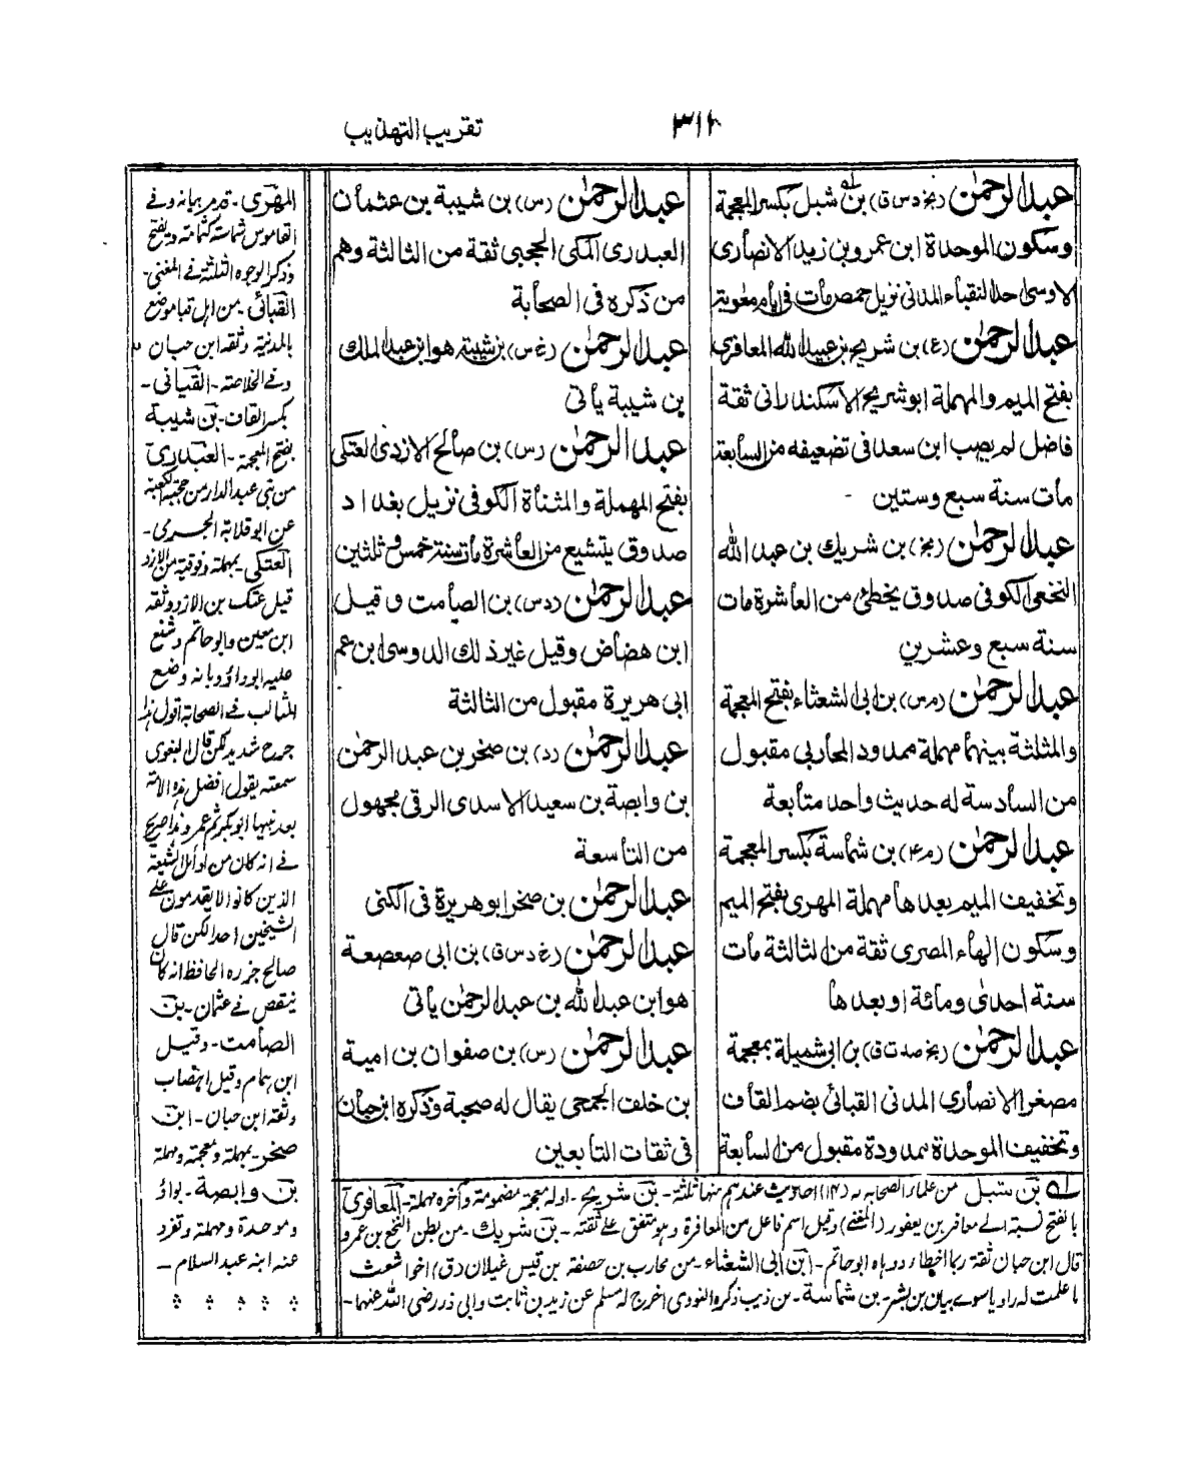 تقريب التهذيب
٣١٢
عبدالرحمٰن (بخ دس ق) بن شبل بكسر المعجمة
وسكون الموحدة ابن عمرو بن زيد الانصارى
الاوسى احد النقباء المدنى نزيل حمص مات فى ايام معوية
عبدالرحمٰن (ع) بن شريح بن عبيد الله المعافرى
بفتح الميم والمهملة ابو شريح الاسكندرانى ثقة
فاضل لم يصب ابن سعد فى تضعيفه من السابعة
مات سنة سبع وستين
عبدالرحمٰن (بخ) بن شريك بن عبد الله
النخعى الكوفى صدوق يخطئ من العاشرة مات
سنة سبع وعشرين
عبدالرحمٰن (م س) بن ابى الشعثاء بفتح المعجمة
والمثلثة بينهما مهملة ممدود المحاربى مقبول
من السادسة له حديث واحد متابعة
عبدالرحمٰن (م ٤) بن شماسة بكسر المعجمة
وتخفيف الميم بعدها مهملة المهرى بفتح الميم
وسكون الهاء المصرى ثقة من الثالثة مات
سنة احدى ومائة او بعدها
عبدالرحمٰن (بخ صدت ق) بن ابى شميلة بمعجمة
مصغر الانصارى المدنى القبائى بضم القاف
وتخفيف الموحدة ممدودة مقبول من السابعة
عبدالرحمٰن (س) بن شيبة بن عثمان
العبدرى المكى الحجبى ثقة من الثالثة وهم
من ذكره فى الصحابة
عبدالرحمٰن (خ س) بن شيبة هو ابن عبد الملك
بن شيبة يأتى
عبدالرحمٰن (س) بن صالح الازدى العتكى
بفتح المهملة والمثناة الكوفى نزيل بغداد
صدوق يتشيع من العاشرة مات سنة خمس وثلثين
عبدالرحمٰن (دس) بن الصامت وقيل
ابن هضاض وقيل غير ذلك الدوسى ابن عم
ابى هريرة مقبول من الثالثة
عبدالرحمٰن (د) بن صخر بن عبد الرحمٰن
بن وابصة بن سعيد الاسدى الرقى مجهول
من التاسعة
عبدالرحمٰن بن صخر ابو هريرة فى الكنى
عبدالرحمٰن (خ دس ق) بن ابى صعصعة
هو ابن عبد الله بن عبد الرحمٰن يأتى
عبدالرحمٰن (س) بن صفوان بن امية
بن خلف الجمحى يقال له صحبة وذكره ابن حبان
فى ثقات التابعين
المهرى - قدمر بيانه وفے
القاموس شماسة كثمامة ويفتح
وذكر الوجوه الثلثة فے المغنى -
القبائى - من اهل قبا موضع
بالمدينة وثقه ابن حبان
وفے الخلاصة - القبانى -
بكسر القاف - بن شيبة
بفتح المعجمة - العبدرى
من بنى عبد الدار من حجبة الكعبة
عن ابو قلابة الجرمى -
العتكى - بمهملة وفوقية من الازد
قيل عتك بن الازد وثقه
ابن معين وابو حاتم وشنع
عليه ابو داؤد بانه وضع
المثالب فے الصحابة اقول هذا
جرح شديد لكن قال البغوى
سمعته يقول افضل هذه الامة
بعد نبيها ابو بكر ثم عمر وهذا صريح
فے انه كان من اوائل الشيعة
الذين كانوا لا يقدمون علے
الشيخين احدا لكن قال
صالح جزره الحافظ انه كان
ينقص فے عثمان - بن
الصامت - وقيل
ابن همام وقيل الهضاب
وثقه ابن حبان - ابن
صخر - بمهملة ومعجمة ومهملة
بن وابصة - بواؤ
وموحدة ومهملة وتفرد
عنه ابنه عبد السلام -
له بن شبل من علماء الصحابة له (١٤) احاديث عندهم منها ثلثة - بن شريح - اوله معجمة مضمومة وآخره مهملة - المعافرى
بالفتح نسبة الے معافر بن يعفور (المغنى) وقيل اسم فاعل من المعافرة وهو متفق علے ثقته - بن شريك - من بطن النخع بن عمرو
قال ابن حبان ثقة ربما اخطأ ووهاه ابو حاتم - ابن ابى الشعثاء - من محارب بن خصفة بن قيس غيلان (دق) اخو اشعث
ما علمت له راويا سوے بيان بن بشر - بن شماسة - بن ذيب ذكره النووى اخرج له مسلم عن زيد بن ثابت وابى ذر رضى الله عنهما -